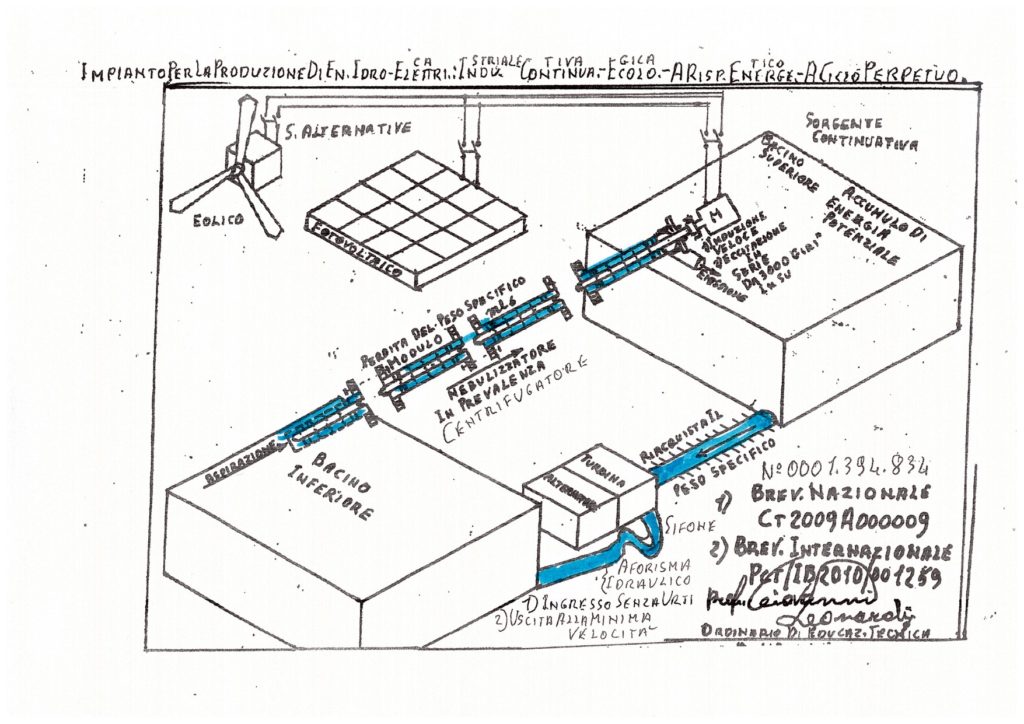 IMPIANTO PER LA PRODUZIONE DI EN. IDRO-ELETTRI.CA: INDUSTRIALE CONTINUATIVA-ECOLOGICA-A RISP. ENERGETICO-A CICLO PERPETUO.
S. ALTERNATIVE
EOLICO
FOTOVOLTRICO
SORGENTE
CONTINUATIVA
BACINO
SUPERIORE
ACCUMULO DI
ENERGIA
POTENZIALE
M
INDUZIONE
VELOCE
D'ECCITAZIONE
IN
SERIE
DA 3000 GIRI
IN SU
EIEZIONE
PERDITA DEL PESO SPECIFICO
MODULO ML6
NEBULIZZATORE
IN PREVALENZA
CENTRIFUGATORE
ASPIRAZIONE
BACINO
INFERIORE
RIACQUISTA IL
PESO SPECIFICO
TURBINA
ALTERNATORE
SIFONE
AFORISMA
IDRAULICO
1) INGRESSO SENZA URTI
2) USCITA ALLA MINIMA
VELOCITA'
N° 0001.394.834
1) BREV. NAZIONALE
CT2009A000009
2) BREV. INTERNAZIONALE
PCT/IB2010/001259
Prof. Giovanni
Leonardi
ORDINARIO DI EDUCAZ. TECNICA